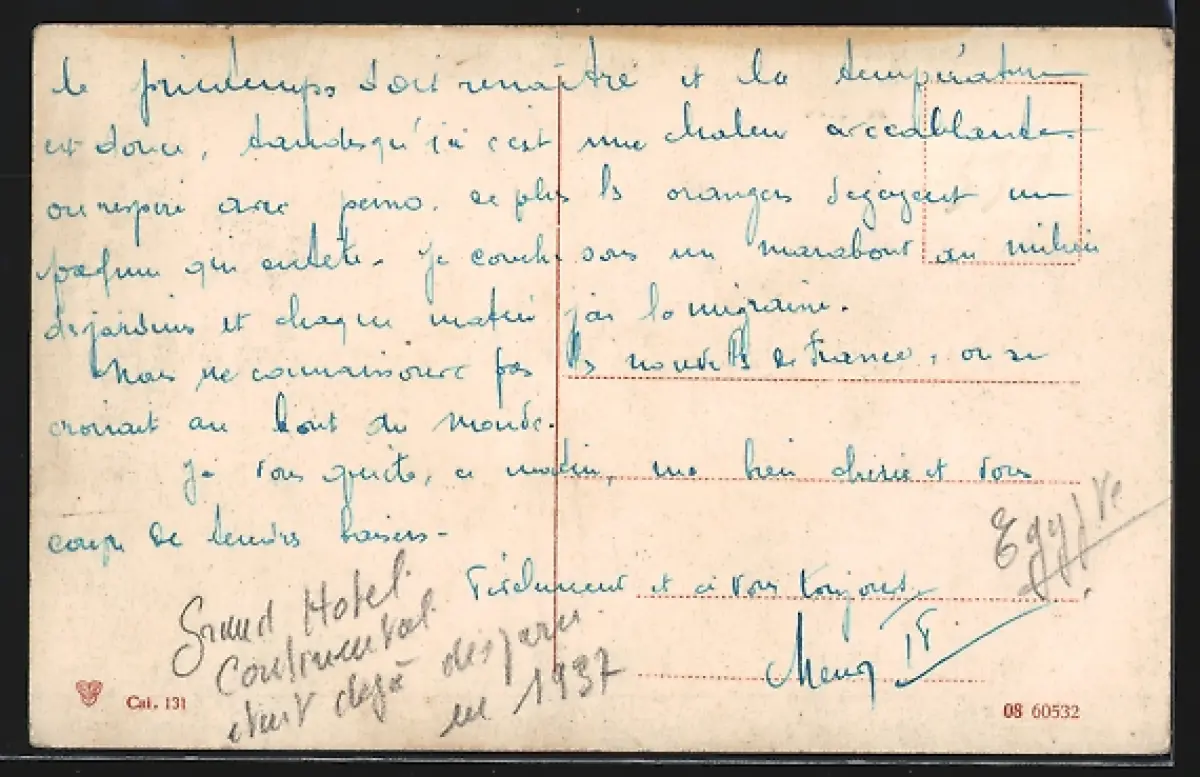 le printemps doit renaître et la température
est douce, tandis qu'ici c'est une chaleur accablante.
on respire avec peine. de plus les orangers dégagent un
parfum qui entête. Je couche sous un marabout au milieu
des jardins et chaque matin j'ai la migraine.
Nous ne connaissons pas les nouvelles de France, on se
croirait au bout du monde.
Je vous quitte, ce matin, ma bien chérie et vous
de tendres baisers-
Fidèlement et à vous toujours.
Egypte
Grand Hotel
Continental
était dejà disparu
en 1937
Cai. 131
08 60532